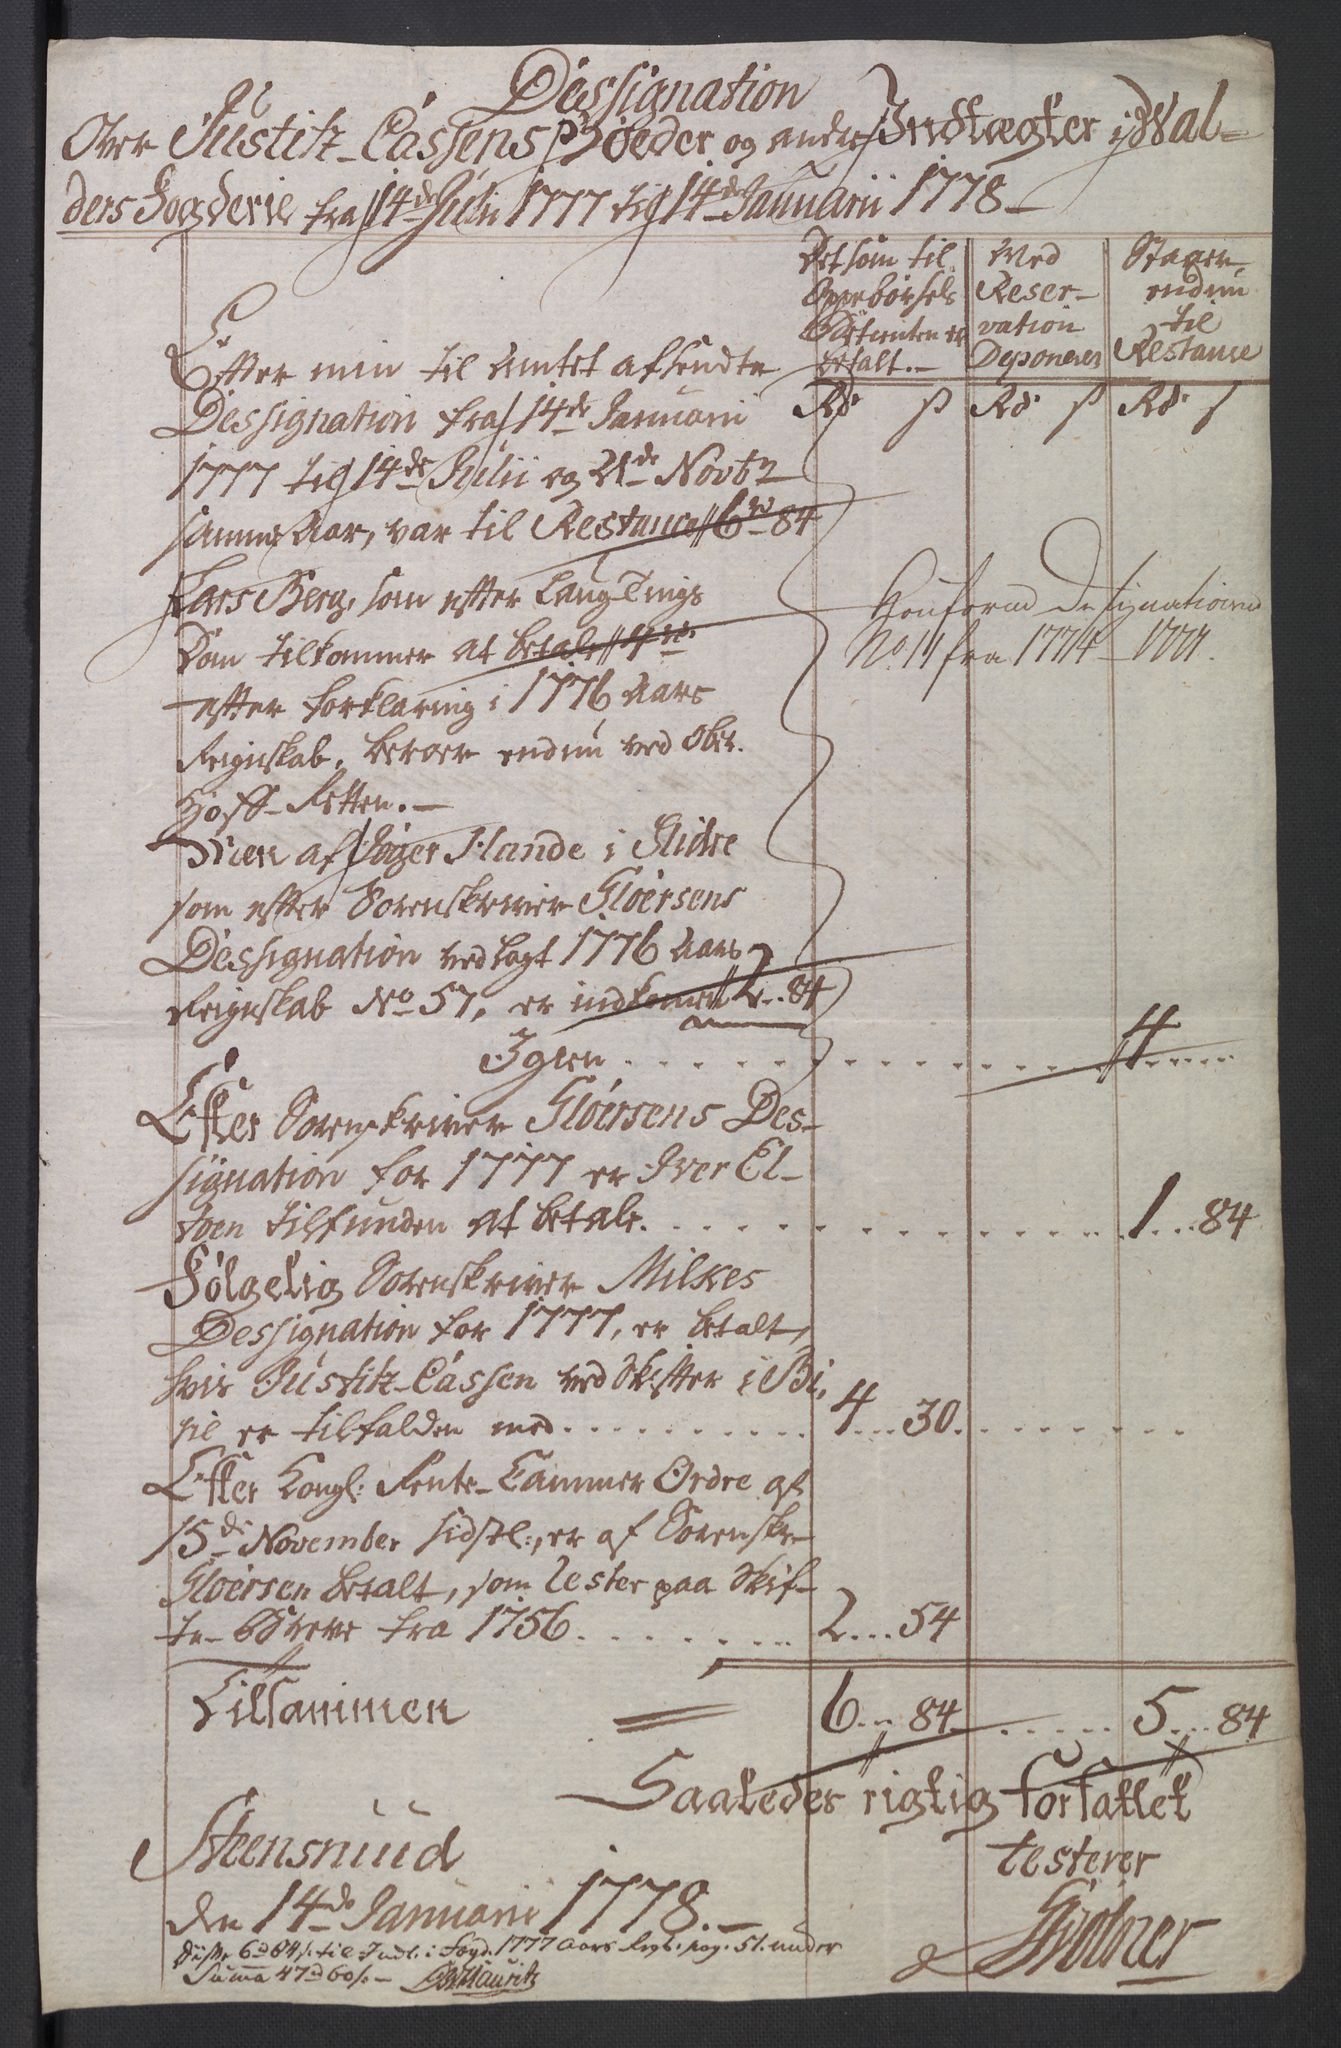 Dessignation
Over Justitz-Cassens Bøeder og andre Indtægter i Wal-
ders Fogderie fra 14de Julii 1777 til 14de Januarii 1778
Det som til Oppebørsels Betienten er betalt.
Med Reser-vation Deponeres
Staaer endnu til Restance
Rd. s Rd. s Rd. s
Efter min til Amtet afsendte
Dessignation fra 14de Januarii
1777 til 14de Julii og 21de Novbr
samme Aar, var til Restance 6 rd 84
Lars Berg, som efter Laug-Tings
Dom tilkommer at betale 4 rd.
efter forklaring i 1776 Aars
Reignskab, beroer endnu ved Ober-
Hoff-Retten.
Conform Designationen
No. 11 fra 1774 - 1777.
Men af Hande i Slidre
som efter Sorenskriver Gløersens
Dessignation vedlagt 1776 Aars
Reignskab No 57, er indkommet 2 .. 84
Igien . . . 4
Efter Sorenskriver Gløersens Des-
signation for 1777 er Iver El-
tilfunden at betale . . . 1 ... 84
Følgelig Sorenskriver Milses
Dessignation for 1777, er betalt,
hvis Justitz-Cassen ved Skifter i
er tilfalden med . . . 4 ... 30.
Efter Kongl: Rente-Cammer Ordre af
15de November sidstl:, er af Sorenskr-
Gløersen betalt, som Lester paa Skif-
te-Breve fra 1756 . . . 2 ... 54
Tilsammen = 6 ... 84 . . . 5 ... 84
Saaledes rigtig forfattet
testerer
Steensruud
den 14de Januarii 1778.
Disse 6 d 84 s. til Indt. i Fogd. 1777 Aars Regl. pag. 51. under
Summa 47 d 60 s